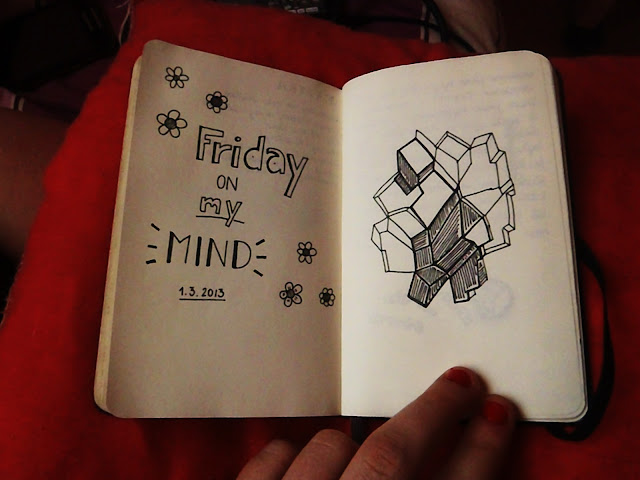 Friday
ON
my
MIND
1.3.2013